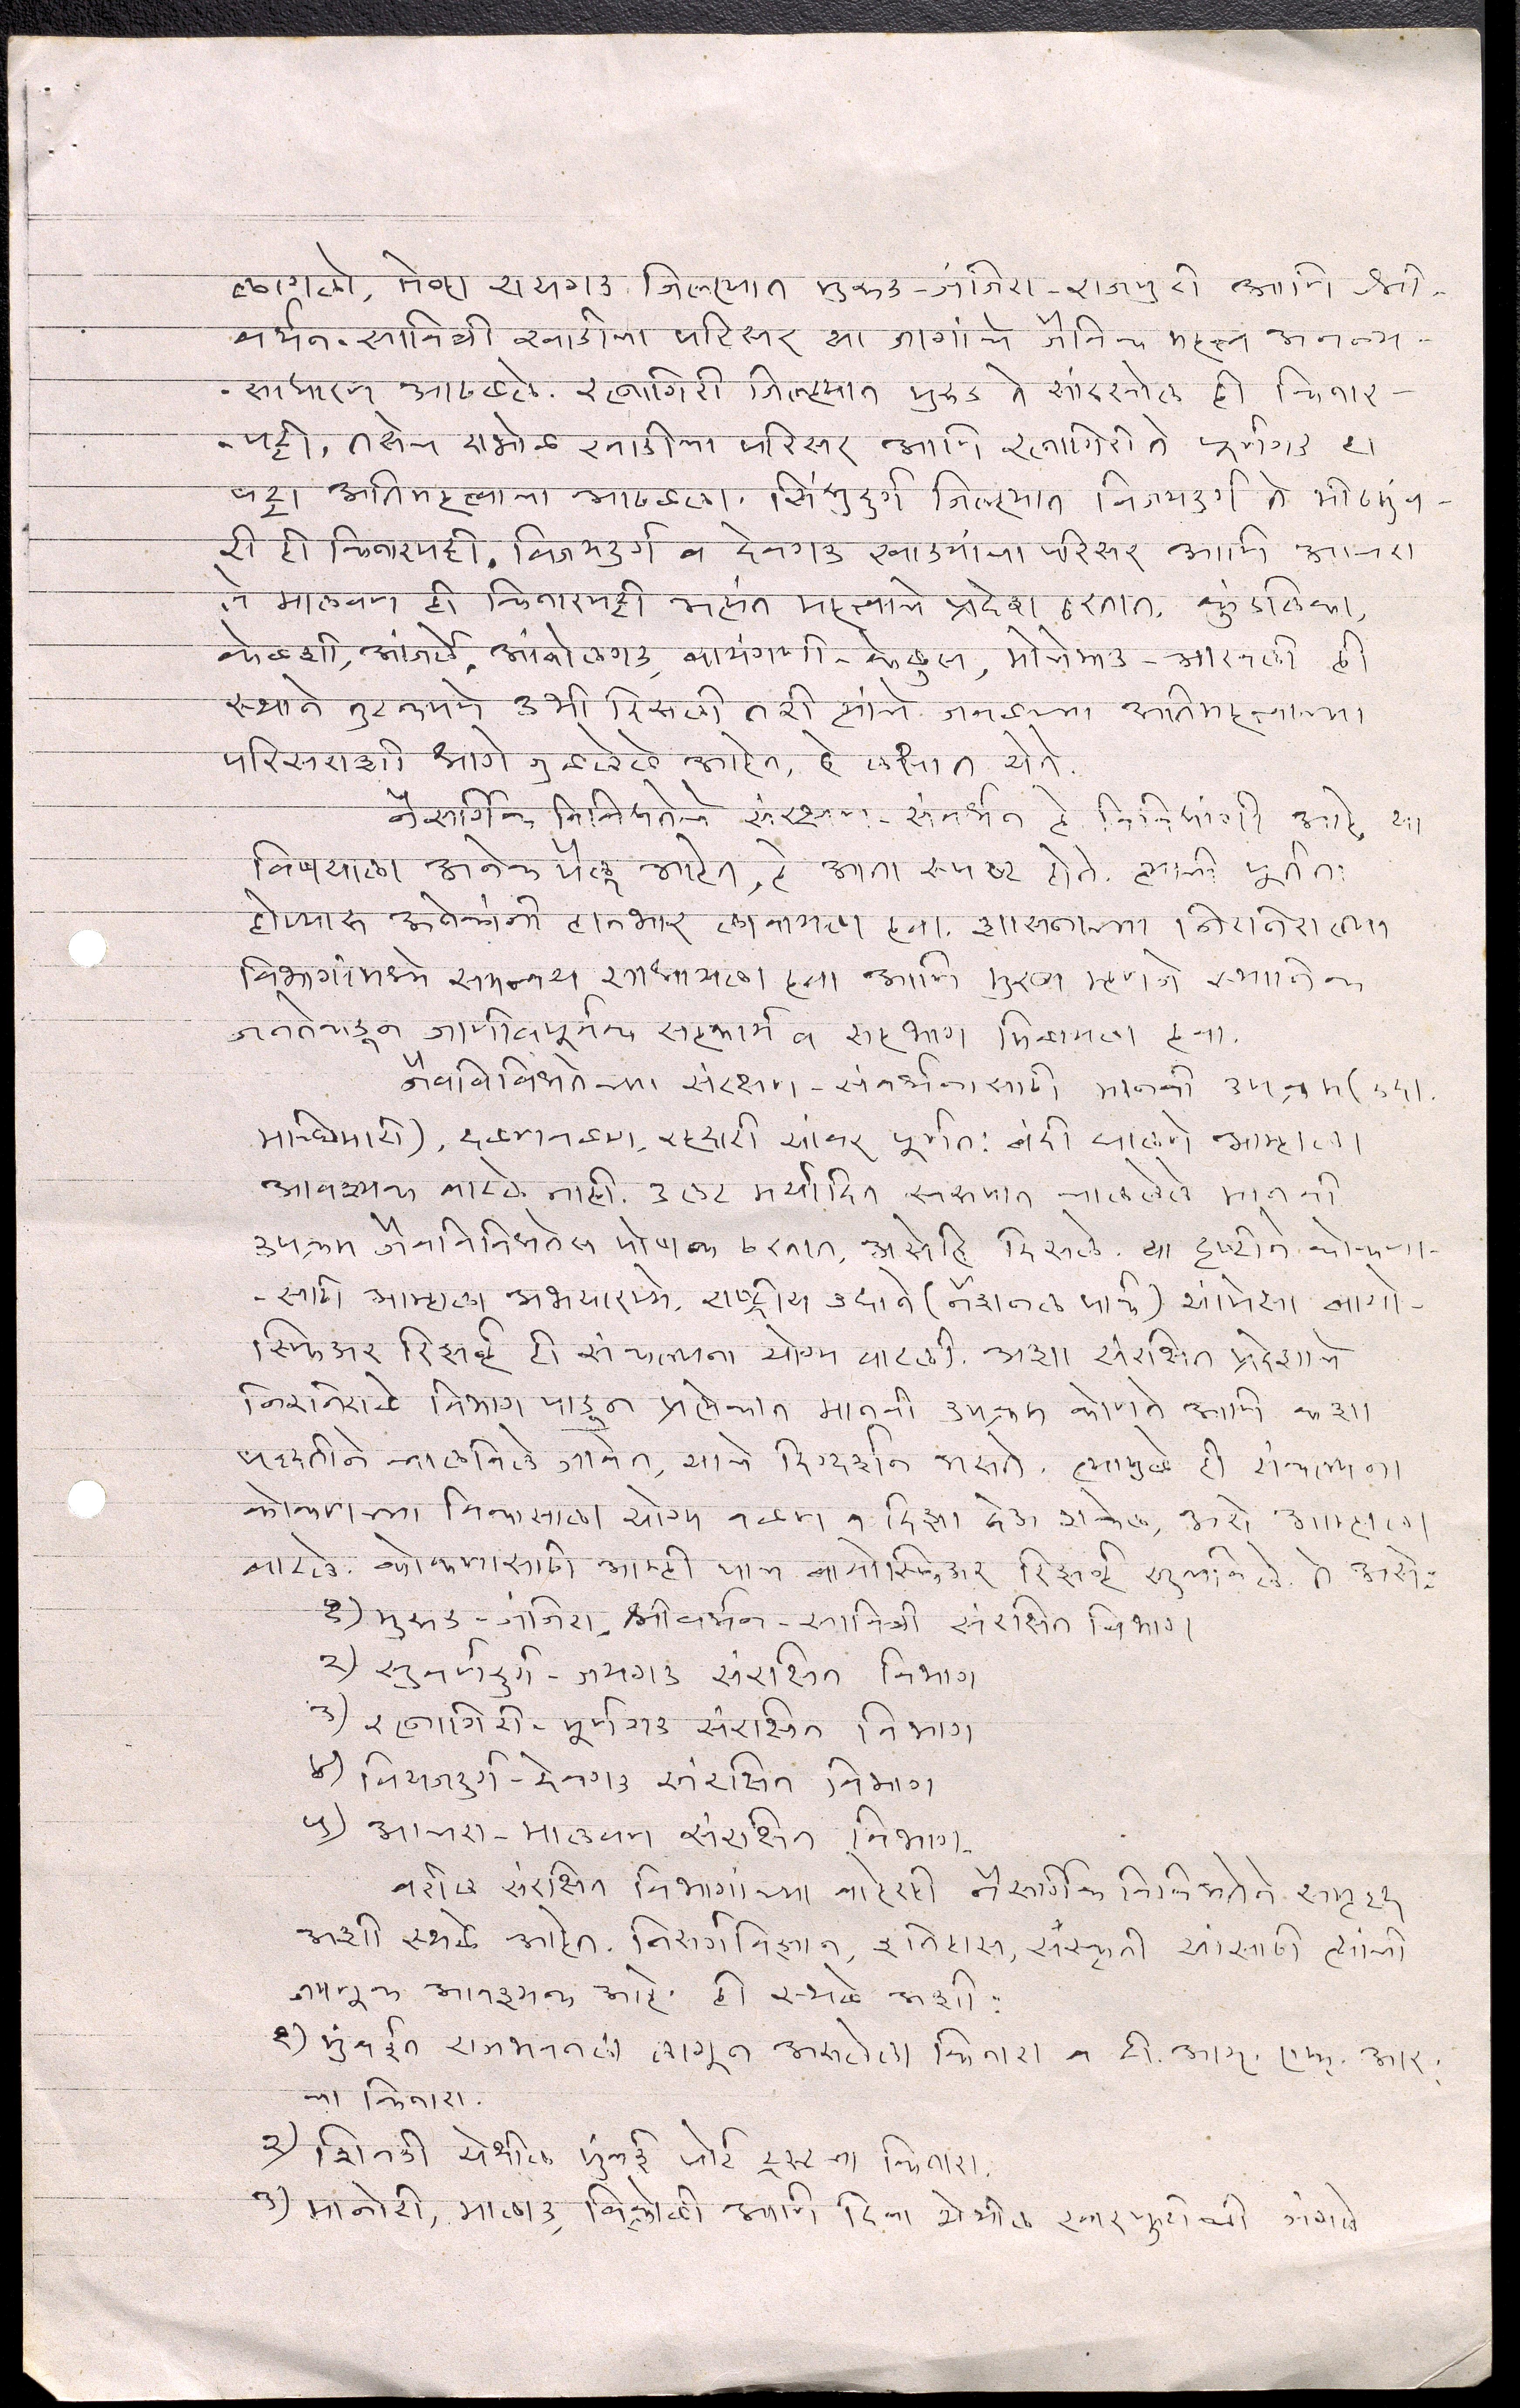 लागलो, तेव्हा रायगड जिल्ह्यात मुरूड-जंजिरा-राजपुरी आणि श्री-
वर्धन-सावित्री खाडीचा परिसर या जागांचे जैविक महत्त्व अनन्य-
-साधारण आढळले. रत्नागिरी जिल्ह्यात मुरूड ते सांडखोल ही किनार-
-पट्टी, तसेच दाभोळ खाडीचा परिसर आणि रत्नागिरी ते पूर्णगड हा
पट्टा अतिमहत्त्वाचा आढळला. सिंधुदुर्ग जिल्ह्यात विजयदुर्ग ते मीठमुंब-
री ही किनारपट्टी, विजयदुर्ग व देवगड खाड्यांचा परिसर आणि आचरा
ते मालवण ही किनारपट्टी अत्यंत महत्त्वाचे प्रदेश ठरतात. कुंडलिका,
केळशी, आंजर्ले, आंबोळगड, वायंगणी-केळुस, मोचेमाड-आरवली ही
स्थाने तुटकपणे उभी दिसली तरी त्यांचे जवळच्या अतिमहत्त्वाच्या
परिसराशी धागे जुळलेले आहेत, हे लक्षात येते.
नैसर्गिक विविधतेचे संरक्षण-संवर्धन हे विविधांगी आहे, या
विषयाला अनेक पैलू आहेत, हे आता स्पष्ट होते. त्याची पूर्तता
होण्यास अनेकांनी हातभार लावायला हवा. शासनाच्या निरनिराळ्या
विभागांमध्ये समन्वय साधायला हवा आणि मुख्य म्हणजे स्थानिक
जनतेकडून जाणीवपूर्वक सहकार्य व सहभाग मिळायला हवा.
जैवविविधतेच्या संरक्षण-संवर्धनासाठी मानवी उपक्रम (उदा.
मच्छिमारी), दळणवळण, रहदारी यांवर पूर्णत: बंदी घालणे आम्हाला
आवश्यक वाटले नाही. उलट मर्यादित स्वरूपात चाललेले मानवी
उपक्रम जैवविविधतेस पोषक ठरतात, असेहि दिसले. या दृष्टीने कोकणा-
-साठी आम्हाला अभयारण्ये, राष्ट्रीय उद्याने (नॅशनल पार्क) यांपेक्षा बायो-
स्फिअर रिझर्व्ह ही संकल्पना योग्य वाटली. अशा संरक्षित प्रदेशाचे
निरनिराळे विभाग पाडून प्रत्येकात मानवी उपक्रम कोणते आणि कशा
पद्धतीने चालविले जावेत, याचे दिग्दर्शन असते. त्यामुळे ही संकल्पना
कोकणच्या विकासाला योग्य वळण व दिशा देऊ शकेल, असे आम्हाला
वाटले. कोकणासाठी आम्ही पाच बायोस्फिअर रिझर्व्ह सुचविले. ते असे:
१) मुरूड-जंजिरा, श्रीवर्धन-सावित्री संरक्षित विभाग
२) सुवर्णदुर्ग-जयगड संरक्षित विभाग
३) रत्नागिरी-पूर्णगड संरक्षित विभाग
४) वियजदुर्ग-देवगड संरक्षित विभाग
५) आचरा-मालवण संरक्षित विभाग.
वरील संरक्षित विभागांच्या बाहेरही नैसर्गिक विविधतेने समृद्ध
अशी स्थळे आहेत. निसर्गविज्ञान, इतिहास, संस्कृती यांसाठी त्यांची
जपणूक आवश्यक आहे. ही स्थळे अशी:
१) मुंबईत राजभवनला लागून असलेला किनारा व टी. आय. एफ. आर.
चा किनारा.
२) शिवडी येथील मुंबई पोर्ट ट्रस्टचा किनारा.
३) मानोरी, मालाड, विक्रोळी आणि दिवा येथील खारफुटीची जंगले